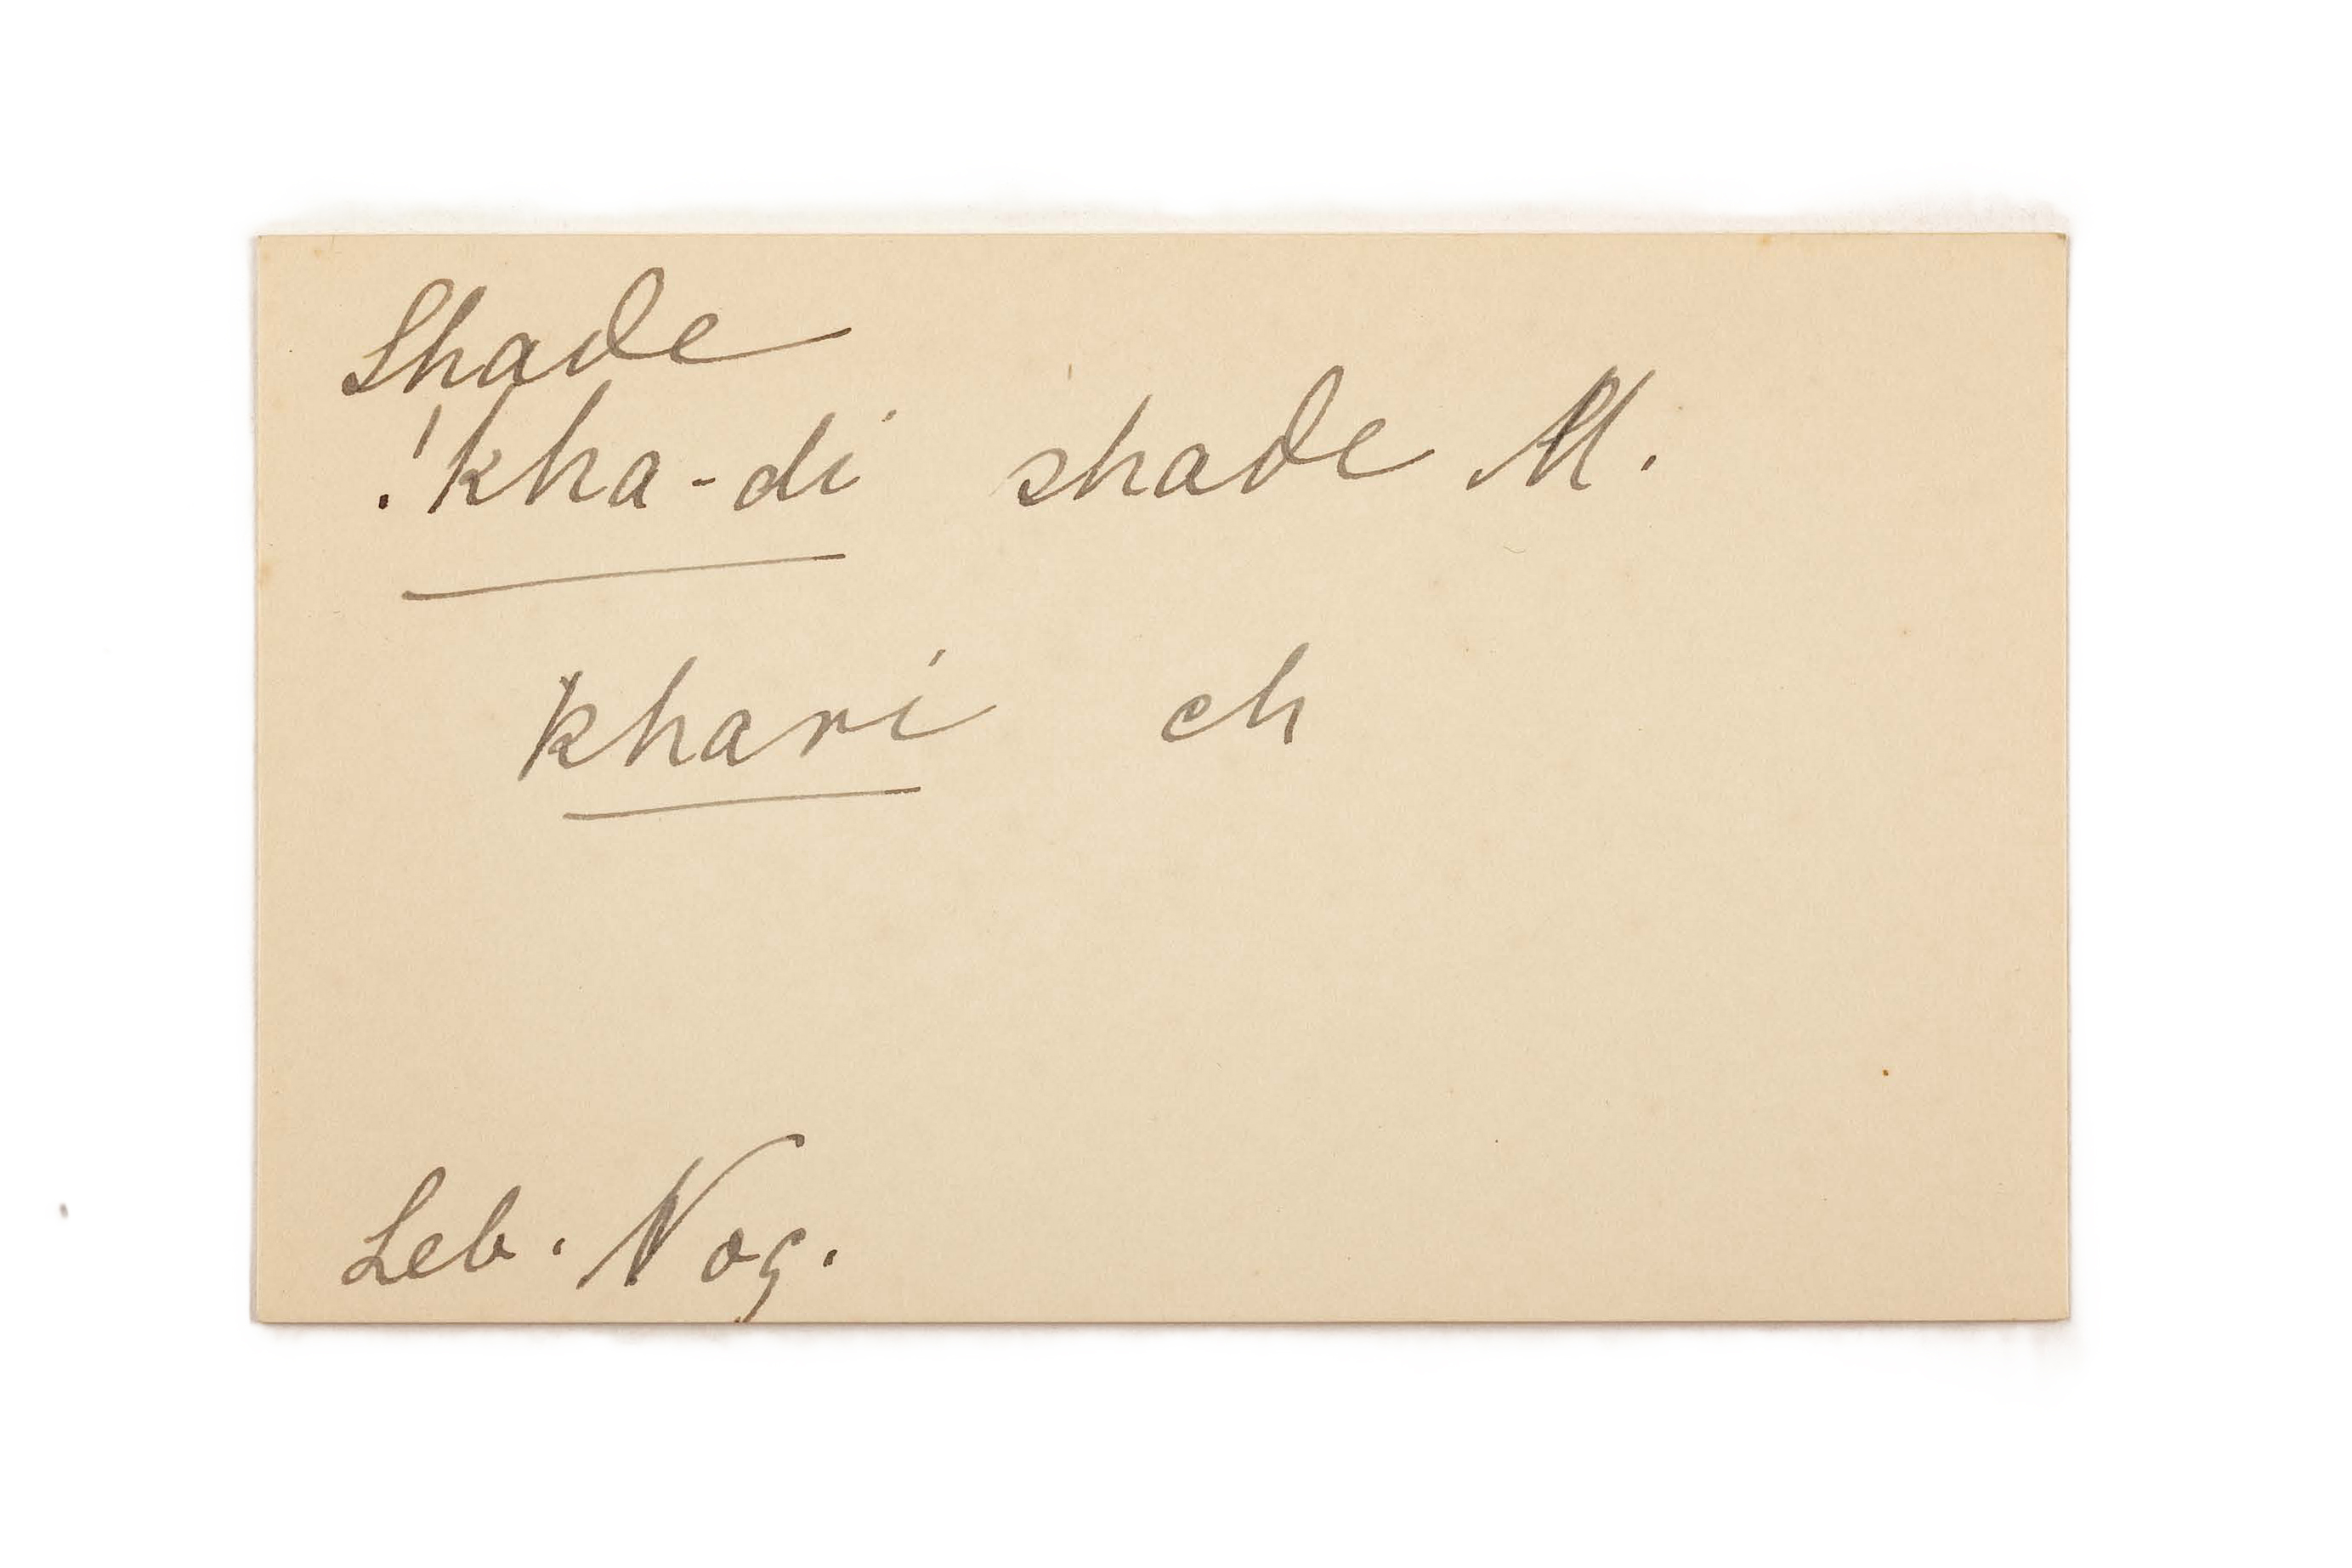 Shade
!kha-di shade M.
khari ch
Leb. Nog.